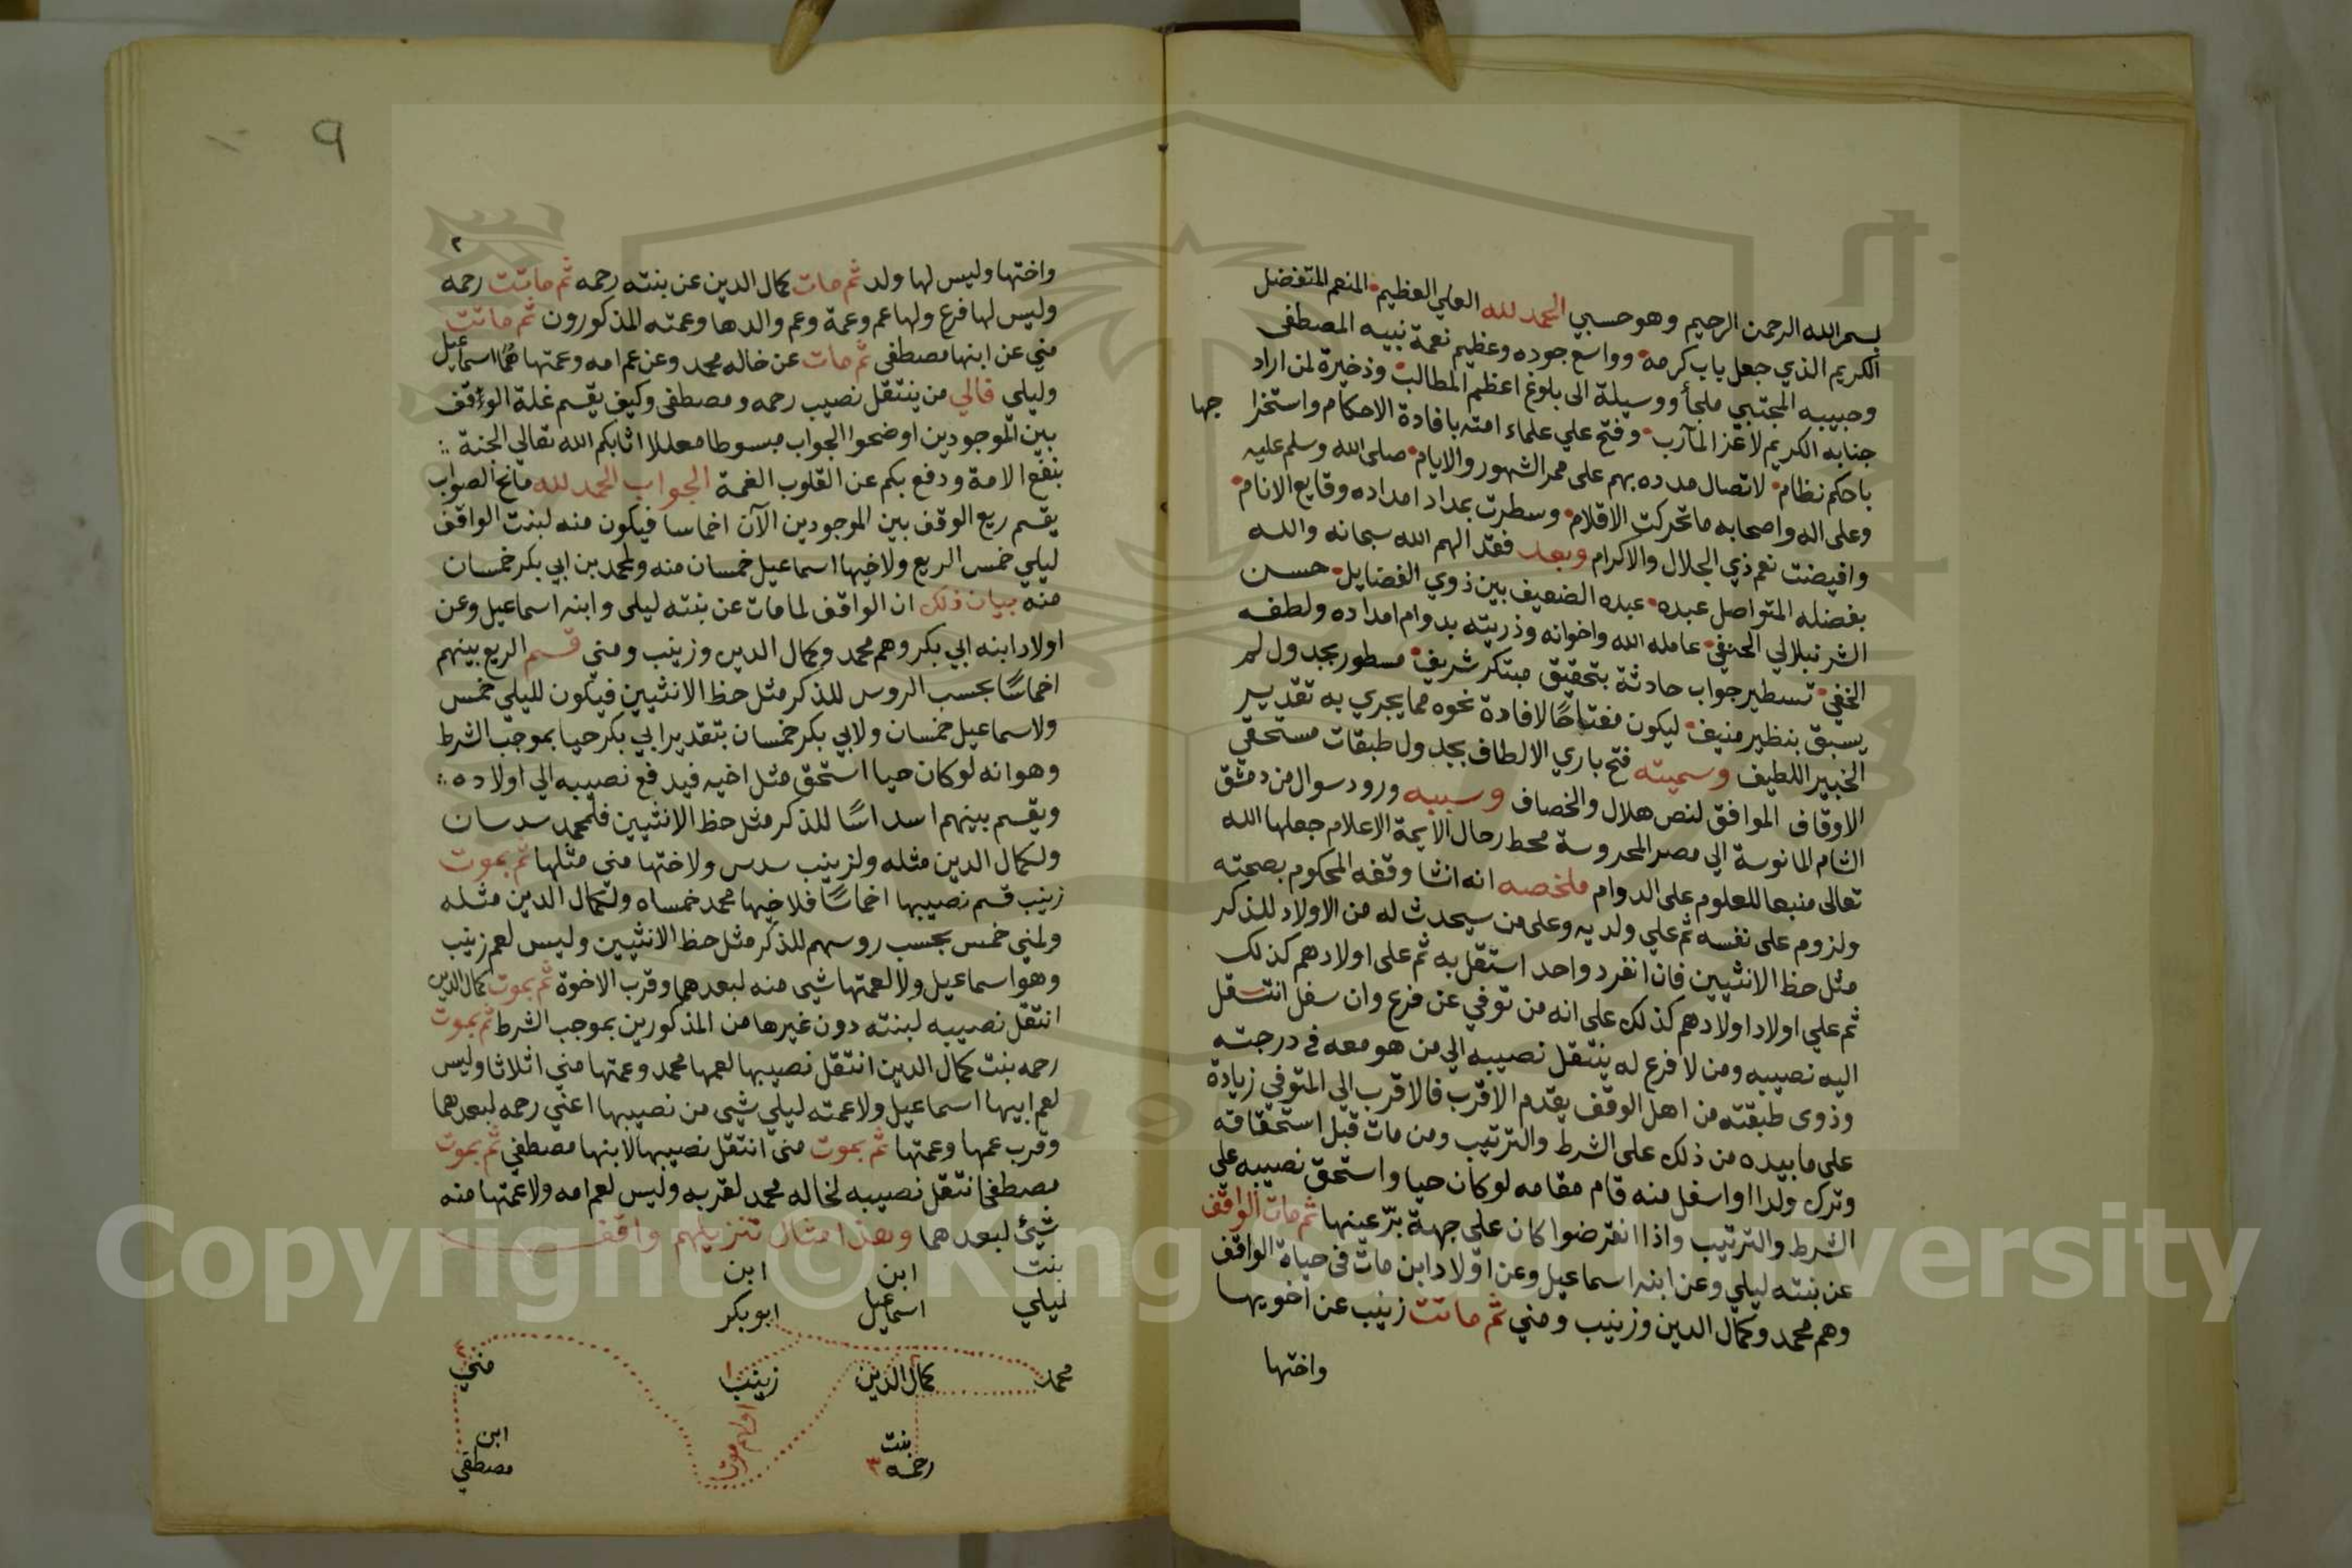 بسم الله الرحمن الرحيم وهو حسبي الحمد لله العلي العظيم المنعم المتفضل
الكريم الذي جعل باب كرمه وواسع جوده وعظيم نعمة نبيه المصطفى
وحبيبه المجتبي ملجأ ووسيلة الى بلوغ اعظم المطالب وذخيرة لمن اراد
جنابه الكريم لاعز المآرب وفتح علي علماء امته بافادة الاحكام واستخرا جها
باحكم نظام لاتصال مدده بهم على ممر الشهور والايام صلى الله وسلم عليه
وعلى اله واصحابه ما تحركت الاقلام وسطرت بمداد امداده وقايع الانام
وافيضت نعم ذي الجلال والاكرام وبعد فقد الهم الله سبحانه والله
بفضله المتواصل عبده عبده الضعيف بين ذوي الفضايل حسن
الشرنبلالي الحنفي عامله الله واخوانه وذريته بدوام امداده ولطفه
الخفي تسطير جواب حادثة بتحقيق مبتكر شريف مسطور بجدول لم
يسبق بنظير منيف ليكون مفتاحًا لافادة نحوه مما يجري به تقدير
الخبير اللطيف وسميته فتح باري الالطاف بجدول طبقات مستحقي
الاوقاف الموافق لنص هلال والخصاف وسببه ورود سوال من دمشق
الشام المانوسة الي مصر المحروسة محط رحال الايمة الاعلام جعلها الله
تعالى منبعا للعلوم على الدوام ملخصه انه انشا وقفه المحكوم بصحته
ولزوم على نفسه ثم علي ولديه وعلى من سيحدث له من الاولاد للذكر
مثل حظ الانثيين فان انفرد واحد استقل به ثم على اولادهم كذلك
ثم علي اولاد اولادهم كذلك على انه من توفي عن فرع وان سفل انتقل
اليه نصيبه ومن لا فرع له ينتقل نصيبه الي من هو معه في درجته
وذوى طبقته من اهل الوقف يقدم الاقرب فالاقرب الي المتوفي زيادة
على ما بيده من ذلك على الشرط والترتيب ومن مات قبل استحقاقه
وترك ولدا او اسفل منه قام مقامه لو كان حيا واستحق نصيبه علي
الشرط والترتيب واذا انقرضوا كان علي جهة برّ عينها ثم مات الواقف
عن بنته ليلي وعن ابنه اسماعيل وعن اولاد ابن مات في حياة الواقف
وهم محمد وكمال الدين وزينب ومني ثم ماتت زينب عن اخويها
واختها
٩
٢
واختها وليس لها ولد ثم مات كمال الدين عن بنته رحمه ثم ماتت رحمه
وليس لها فرع ولها عم وعمة وعم والدها وعمته المذكورون ثم ماتت
مني عن ابنها مصطفى ثم مات عن خاله محمد وعن عم امه وعمتها هما اسماعيل
وليلي فالي من ينتقل نصيب رحمه ومصطفى وكيف يقسم غلة الوقف
بين الموجودين اوضحوا الجواب مبسوطا معللا اثابكم الله تعالي الجنة
بنفع الامة ودفع بكم عن القلوب الغمة الجواب الحمد لله مانح الصواب
يقسم ريع الوقف بين الموجودين الآن اخماسا فيكون منه لبنت الواقف
ليلي خمس الريع ولاخيها اسماعيل خمسان منه ولمحمد بن ابي بكر خمسان
منه بيان ذلك ان الواقف لما مات عن بنته ليلى وابنه اسماعيل وعن
اولاد ابنه ابي بكر وهم محمد وكمال الدين وزينب ومني قسم الريع بينهم
اخماسًا بحسب الروس للذكر مثل حظ الانثيين فيكون لليلي خمس
ولاسماعيل خمسان ولابي بكر خمسان بتقدير ابي بكر حيا بموجب الشرط
وهو انه لو كان حيا استحق مثل اخيه فيدفع نصيبه الي اولاده
ويقسم بينهم اسداسًا للذكر مثل حظ الانثيين فلمحمد سدسان
ولكمال الدين مثله ولزينب سدس ولاختها منى مثلها ثم بموت
زينب قسم نصيبها اخماسًا فلاخيها محمد خمساه ولكمال الدين مثله
ولمني خمس بحسب روسهم للذكر مثل حظ الانثيين وليس لعم زينب
وهو اسماعيل ولا لعمتها شى منه لبعدهما وقرب الاخوة ثم بموت كمال الدين
انتقل نصيبه لبنته دون غيرها من المذكورين بموجب الشرط ثم بموت
رحمه بنت كمال الدين انتقل نصيبها لعمها محمد وعمتها مني اثلاثا وليس
لعم ابيها اسماعيل ولا عمته ليلي شى من نصيبها اعني رحمه لبعدهما
وقرب عمها وعمتها ثم بموت منى انتقل نصيبها لابنها مصطفي ثم بموت
مصطفى انتقل نصيبه لخاله محمد لقربه وليس لعم امه ولا عمتها منه
شيئ لبعدهما وهذا مثال تنزيلهم واقف
بنت ابن ابن
ليلي اسماعيل ابو بكر
محمد كمال الدين ٢ زينب ١ مني ٤
اولهم موت
بنت ابن
رحمه ٣ مصطفي
Copyright © King Saud University